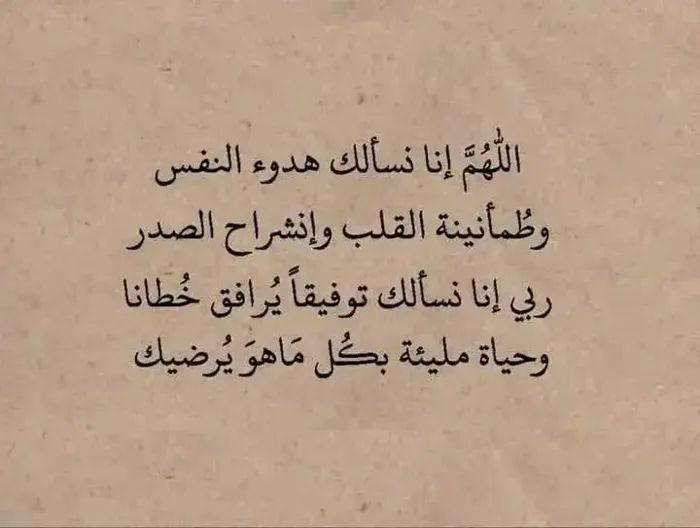 اللّٰهُمَّ إنا نسألك هدوء النفس
وطُمأنينة القلب وإنشراح الصدر
ربي إنا نسألك توفيقاً يُرافق خُطانا
وحياة مليئة بكُل مَاهوَ يُرضيك